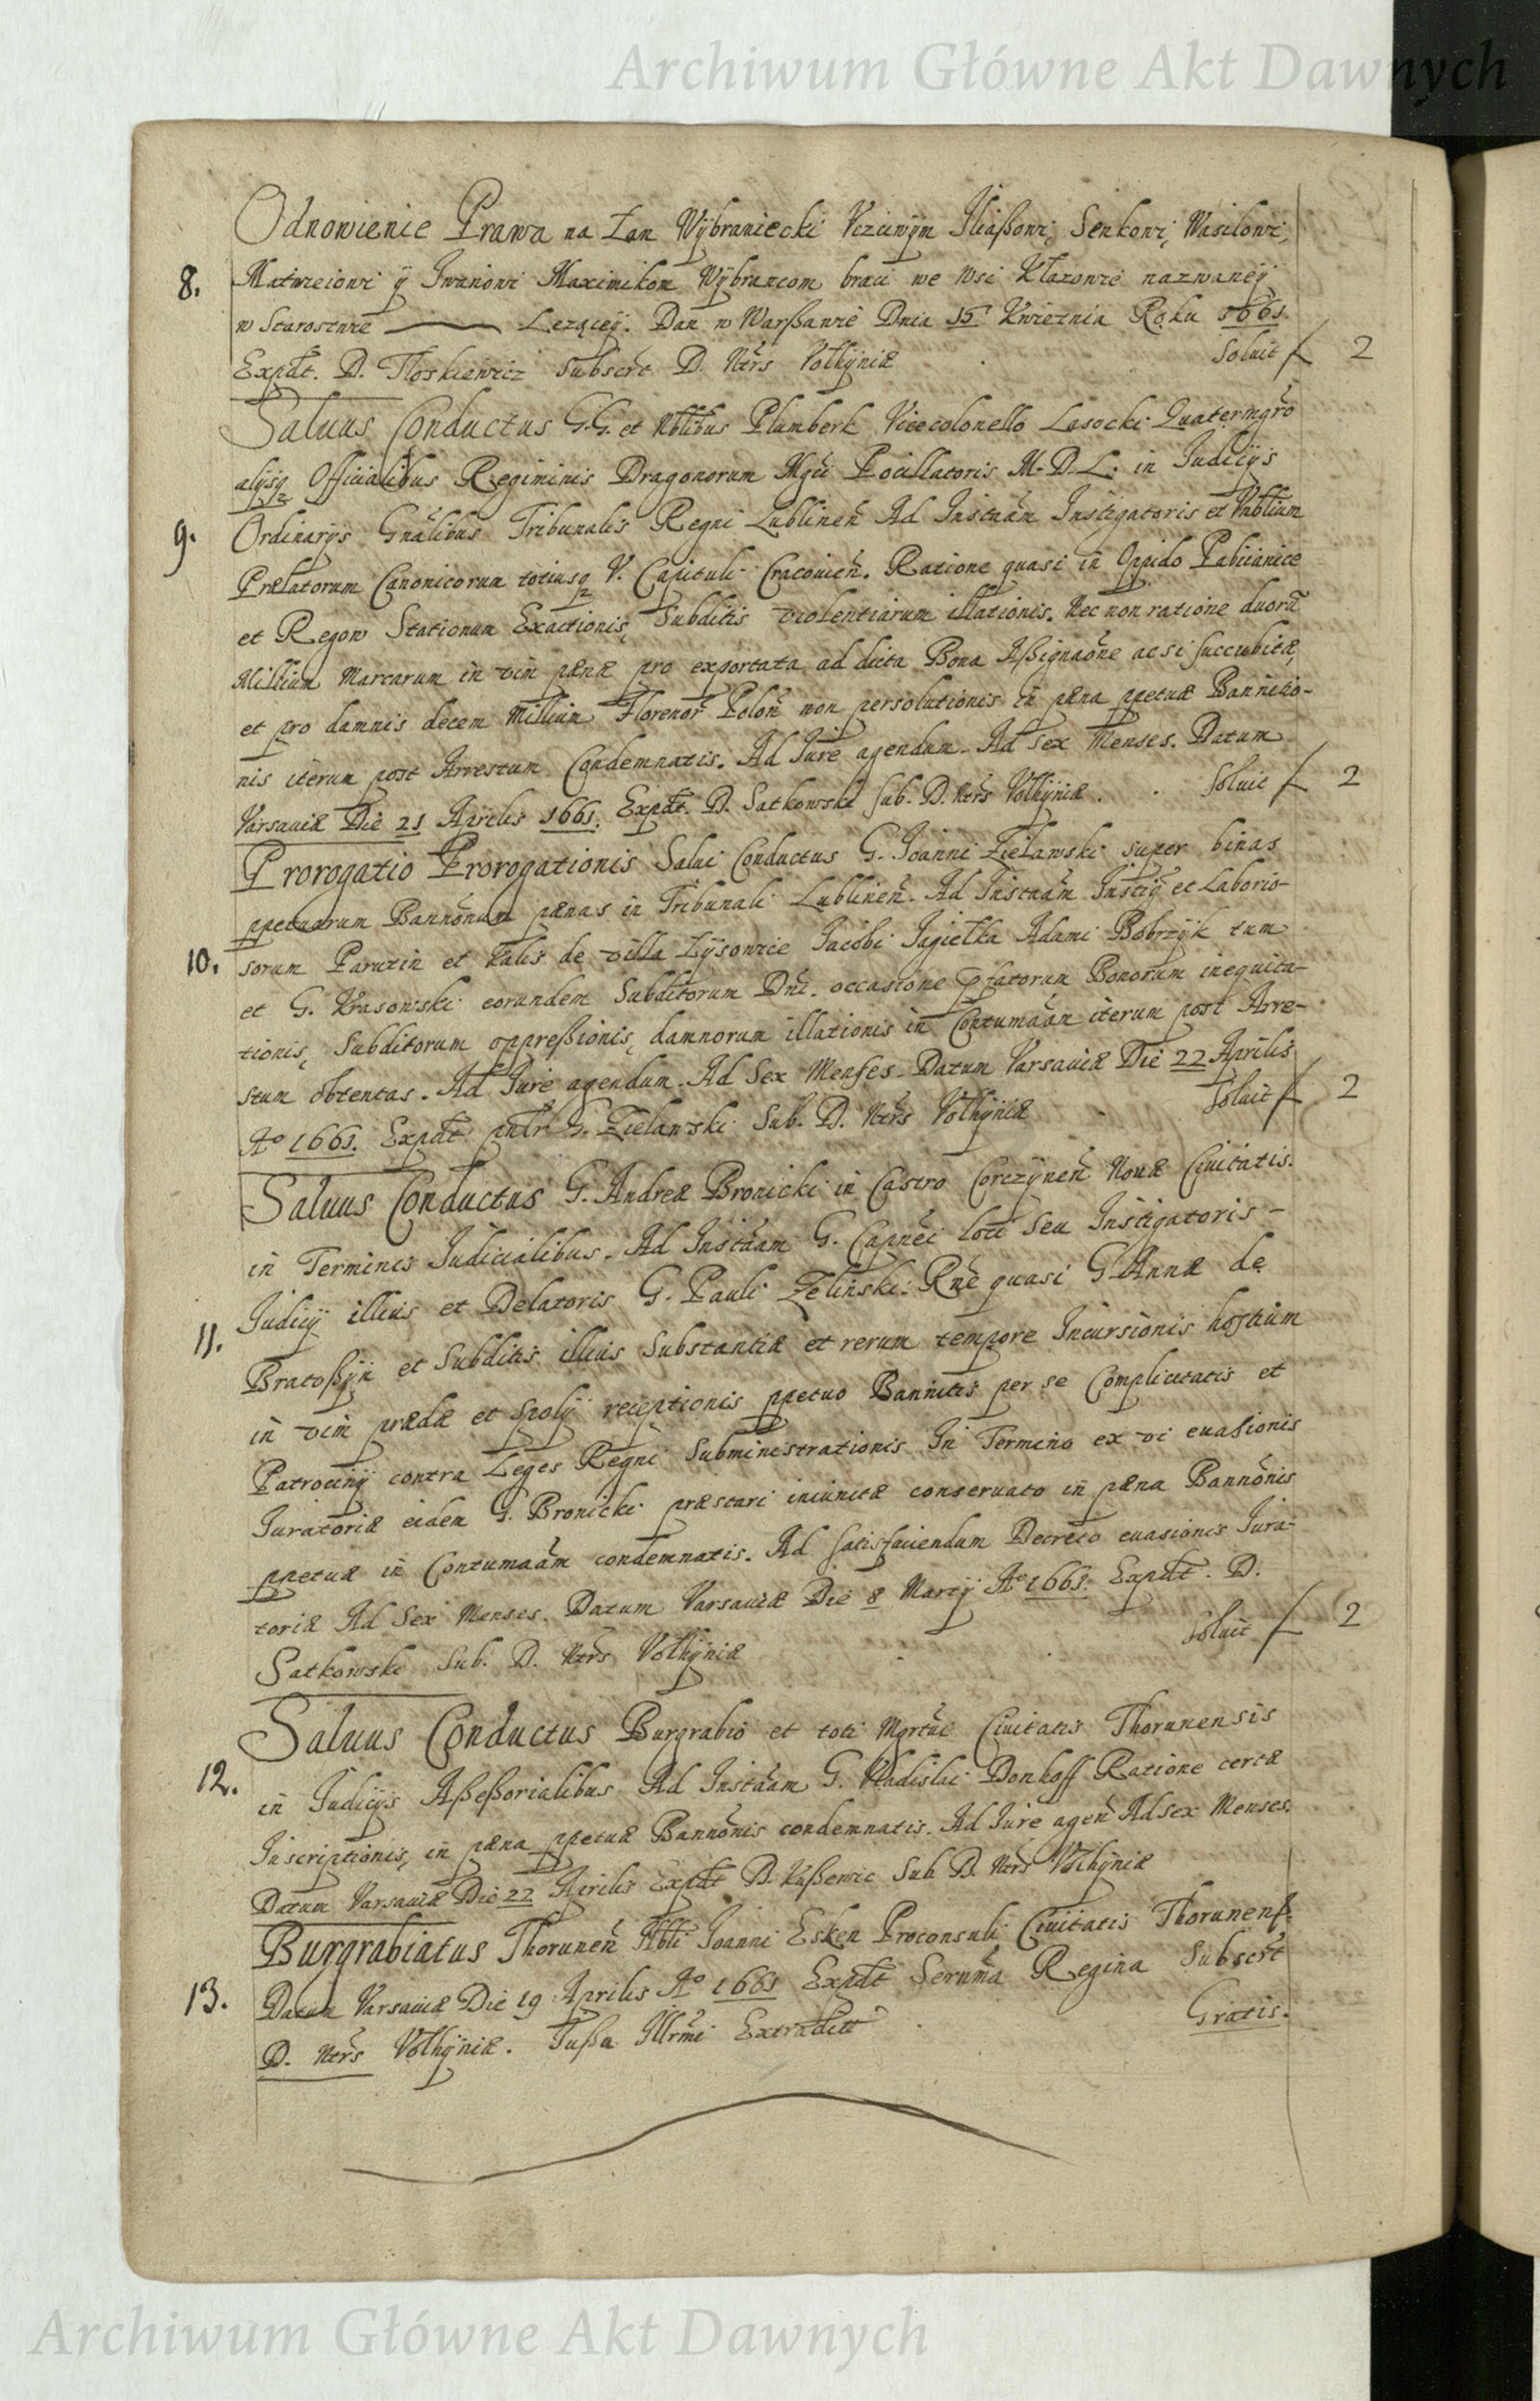 Archiwum Główne Akt Dawnych
Odnowienie Prawa na Łan Wybraniecki Vczciwÿm Iliaßowi, Senkowi, Wasilowi,
8. Matwieiowi ÿ Iwanowi Maximikom Wÿbrancom braci we Wsi Kłazowie nazwaneÿ
w Starostwie ——— Lezącÿ. Dan w Warßawie Dnia 15 Kwietnia Roku 1661.
Expdt. D. Floskiewicz Subscrt D. Ntrs Volhÿniæ . Soluit f 2
Saluus Conductus G.G. et Nblibus Plumberk Vicecolonello Lasocki Quatermgro
alÿsq Officialibus Regiminis Dragonorum Mgci Pocillatoris M. D. L. in Iudicÿs
9. Ordinarÿs Gnalibus Tribunalis Regni Lublinen Ad Instnam Instigatoris et Vnblium
Prælatorum Canonicorum totiusq V. Capituli Cracouien. Ratione quasi in Oppido Pabiianice
et Regow Stationum Exactionis, Subditis violentiarum illationis. Nec non ratione duoru
Millium Marcarum in vim pænæ pro exportata ad dicta Bona Aßignaone acsi succubitæ,
et pro damnis decem Millium Florenor Polon non persolutionis in pæna ppetuæ Bannitio-
nis iterum post Arrestum Condemnatis. Ad Iure agendum. Ad Sex Menses. Datum
Varsauiæ Die 21 Aprilis 1661. Expdt. D. Satkowski sub. D. Ntrs Volhÿniæ . . Soluit f 2
Prorogatio Prorogationis Salui Conductus G. Ioanni Zielawski super binas
ppetuarum Bannonum pænas in Tribunali Lublinen. Ad Instnam Instig et Laborio-
10. sorum Parutin et Valis de villa Łÿsowice Iacobi Iagiełka Adami Bobrzÿk tum
et G. Krasowski eorundem Subditorum Dni. occasione pfatorum Bonorum inequita-
tionis, Subditorum oppreßionis, damnorum illationis in Contumaam iterum post Arre-
stum obtentas. Ad Iure agendum. Ad Sex Menses. Datum Varsauiæ Die 22 Aprilis
Ao 1661. Expdt pntr G. Zielawski Sub. D. Ntrs Volhÿniæ . Soluit f 2
Saluus Conductus G. Andreæ Bronicki in Castro Corczÿnen Nouæ Ciuitatis.
in Terminis Iudicialibus. Ad Instnam G. Capnei loci Seu Instigatoris -
Iudicÿ illius et Delatoris G. Pauli Zelinski. Rne quasi G. Annæ de
11. Bratoßÿn et Subditis illius Substantiæ et rerum tempore Incursionis hostium
in vim prædæ et spolÿ receptionis ppetuo Bannitis per se Complicitatis et
Patrocinÿ contra Leges Regni Subministrationis In Termino ex vi euasionis
Iuratoriæ eidem G. Bronicki præstari iniunctæ conseruato in pæna Bannonis
ppetuæ in Contumaam condemnatis. Ad satisfaciendum Decreto euasionis Iura-
toriæ Ad Sex Menses. Datum Varsauiæ Die 8 Martÿ Ao 1661. Expdt. D.
Satkowski Sub. D. Ntrs Volhÿniæ . . Soluit f 2
Saluus Conductus Burgrabio et toti Mgrtui Ciuitatis Thorunensis
12. in Iudicÿs Aßeßorialibus Ad Instnam G. Vladislai Donhoff Ratione certæ
Inscriptionis, in pæna ppetuæ Bannonis condemnatis. Ad Iure agen Ad sex Menses.
Datum Varsauiæ Die 22 Aprilis Expdt D. Kußewic Sub D. Ntrs Volhÿniæ
Burgrabiatus Thorunen Nbli Ioanni Esken Proconsuli Ciuitatis Thorunens.
13. Datum Varsauiæ Die 19 Aprilis Ao 1661 Expdt Serenma Regina Subscrt
D. Ntrs Volhÿniæ. Iußu Illrmi Extraditt . Gratis.
Archiwum Główne Akt Dawnych